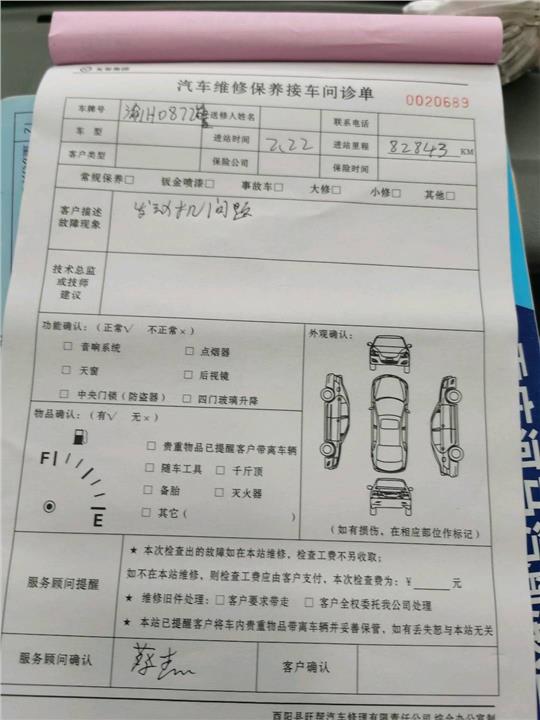 汽车维修保养接车问诊单
0020689
车牌号 渝H0872警 送修人姓名 联系电话
车 型 进站时间 2.22 进站里程 82843 KM
客户类型 保险公司 保险时间
常规保养□ 钣金喷漆□ 事故车□ 大修□ 小修□ 其他□
客户描述 发动机问题
故障现象
技术总监
或技师
建议
功能确认:(正常√ 不正常×) 外观确认:
□ 音响系统 □ 点烟器
□ 天窗 □ 后视镜
□ 中央门锁(防盗器) □ 四门玻璃升降
物品确认:(有√ 无×)
□ 贵重物品已提醒客户带离车辆
F □ 随车工具 □ 千斤顶
□ 备胎 □ 灭火器
E □ 其它( )
(如有损伤,在相应部位作标记)
★ 本次检查出的故障如在本站维修,检查工费不另收取;
服务顾问提醒 如不在本站维修,则检查工费应由客户支付,本次检查费为:¥ 元
★ 维修旧件处理:□ 客户要求带走 □ 客户全权委托我公司处理
★ 本站已提醒客户将车内贵重物品带离车辆并妥善保管,如有丢失恕与本站无关
服务顾问确认 客户确认
酉阳县旺帮汽车修理有限责任公司 综合办公室制